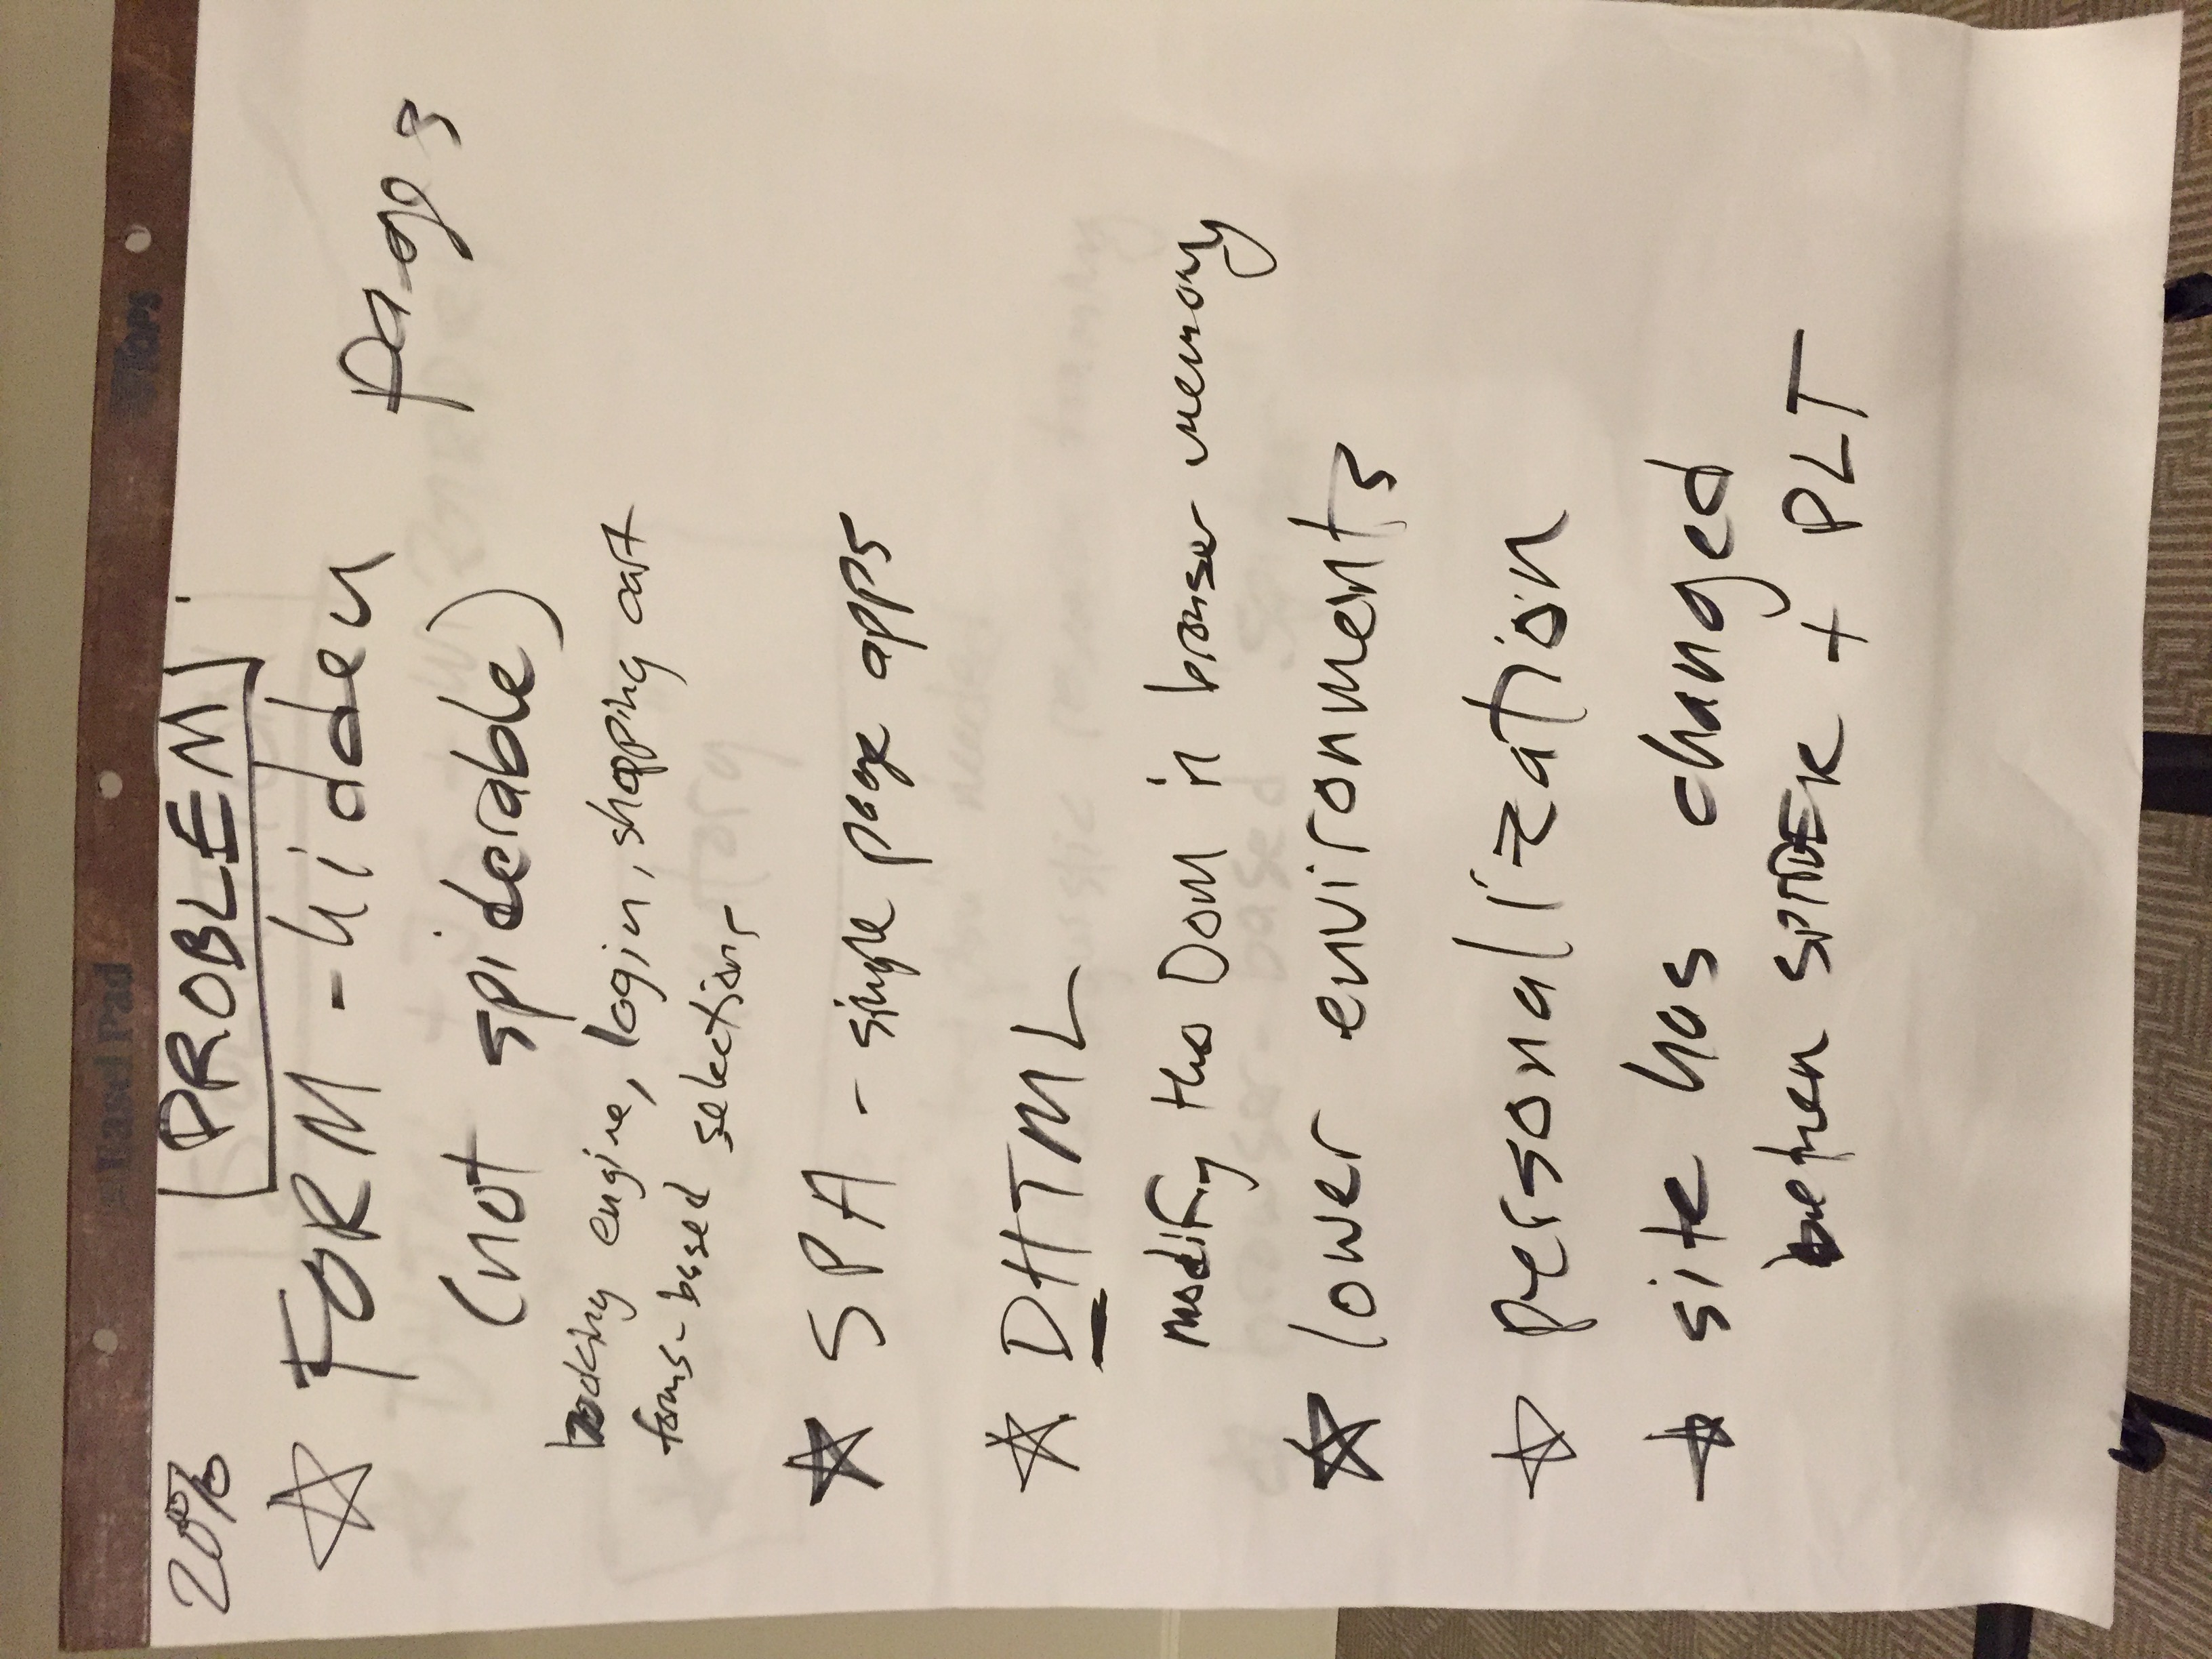 Easel Pad TOPS
20% PROBLEM
☆ FORM-hidden pages
(not spiderable)
booking engine, login, shopping cart
forms-based selections
☆ SPA - single page apps
☆ DHTML
modify the Dom in browser memory
☆ lower environments
☆ personalization
☆ site has changed
between SPIDER + PLT